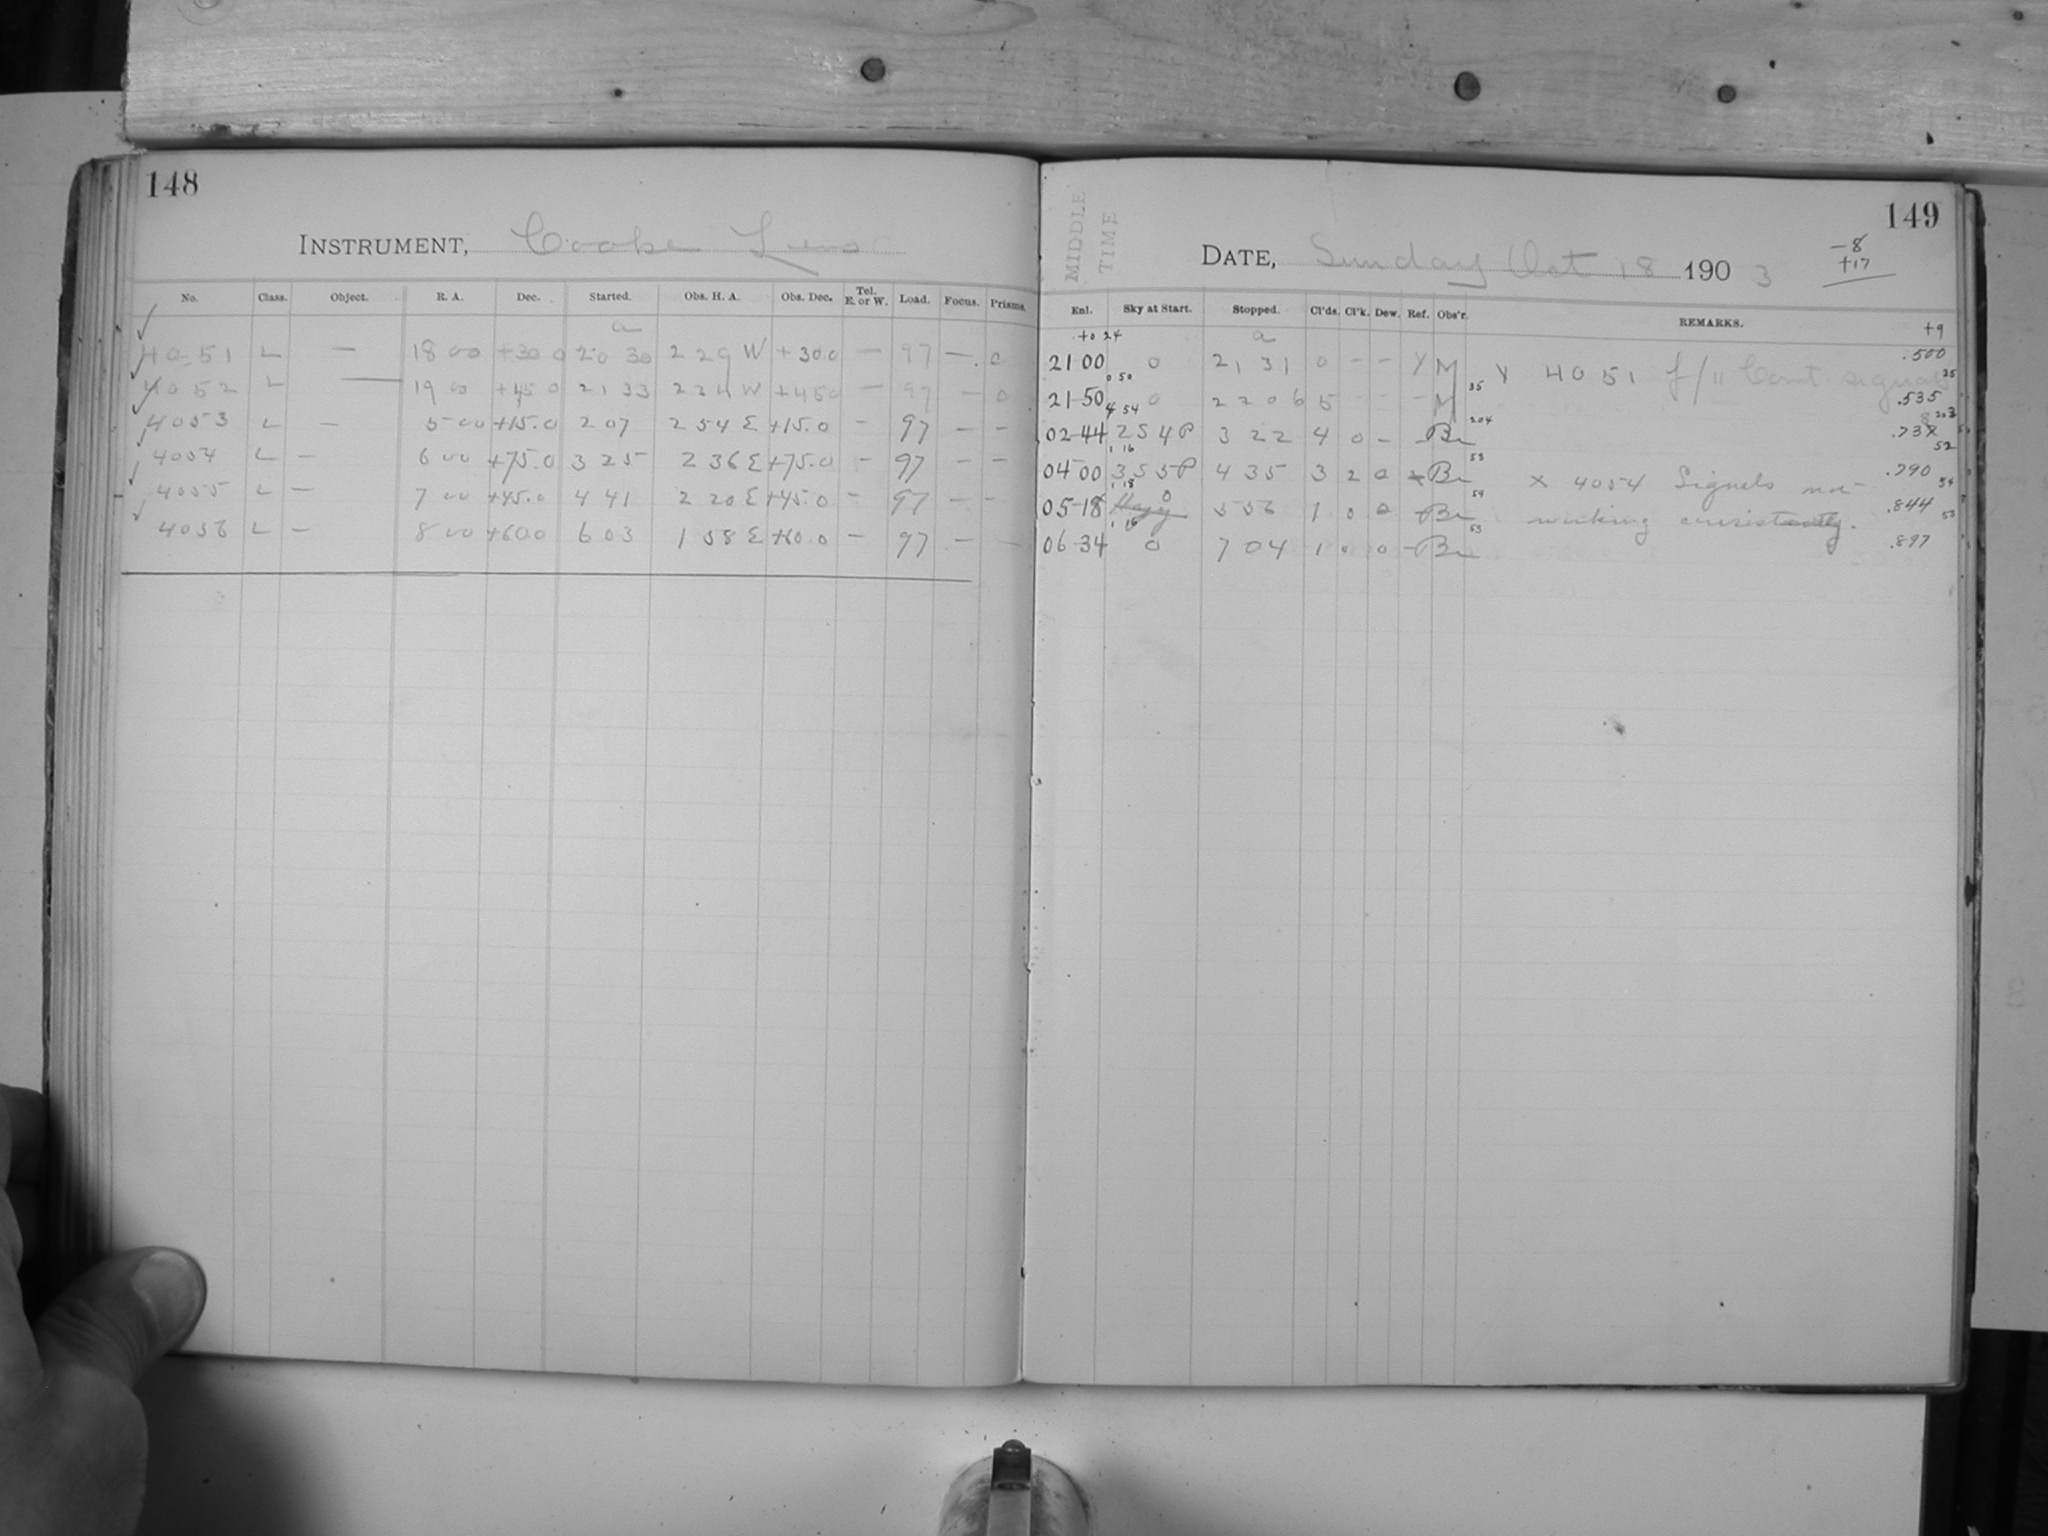 148
INSTRUMENT, Cooke Lens
No. Class. Object. R. A. Dec. Started. Obs. H. A. Obs. Dec. Tel. E. or W. Load. Focus. Prisms.
a
4051 L — 18 00 +30 0 20 30 2 29 W +30.0 — 97 — 0
4052 L — 19 00 +45 0 21 33 2 34 W +45 0 — 97 — 0
4053 L — 5 00 +15.0 2 07 2 54 E +15.0 — 97 — —
4054 L — 6 00 +75.0 3 25 2 36 E +75.0 — 97 — —
4055 L — 7 00 +45.0 4 41 2 20 E +45.0 — 97 — —
4056 L — 8 00 +60.0 6 03 1 58 E +60.0 — 97 — —
149
MIDDLE
TIME
DATE, Sunday Oct 18 1903
-8
+17
Enl. Sky at Start. Stopped. Cl'ds. Cl'k. Dew. Ref. Obs'r. REMARKS.
+0 24 a +9
21-00 0 21 31 0 - - Y M Y 4051 f/11 Cont. signals .500
0 50 35 35
21-50 0 22 06 5 - - - M .535
4 54 204 203
02-44 254P 3 22 4 0 - - Br .737 8
1 16 53 52
04-00 355P 4 35 3 2 0 x Br x 4054 Signals not .790
1 18 54 54
05-18 Hazy 0 5 56 1 0 0 - Br working consistantly. .844
1 16 53 53
06-34 0 7 04 1 0 0 - Br .897